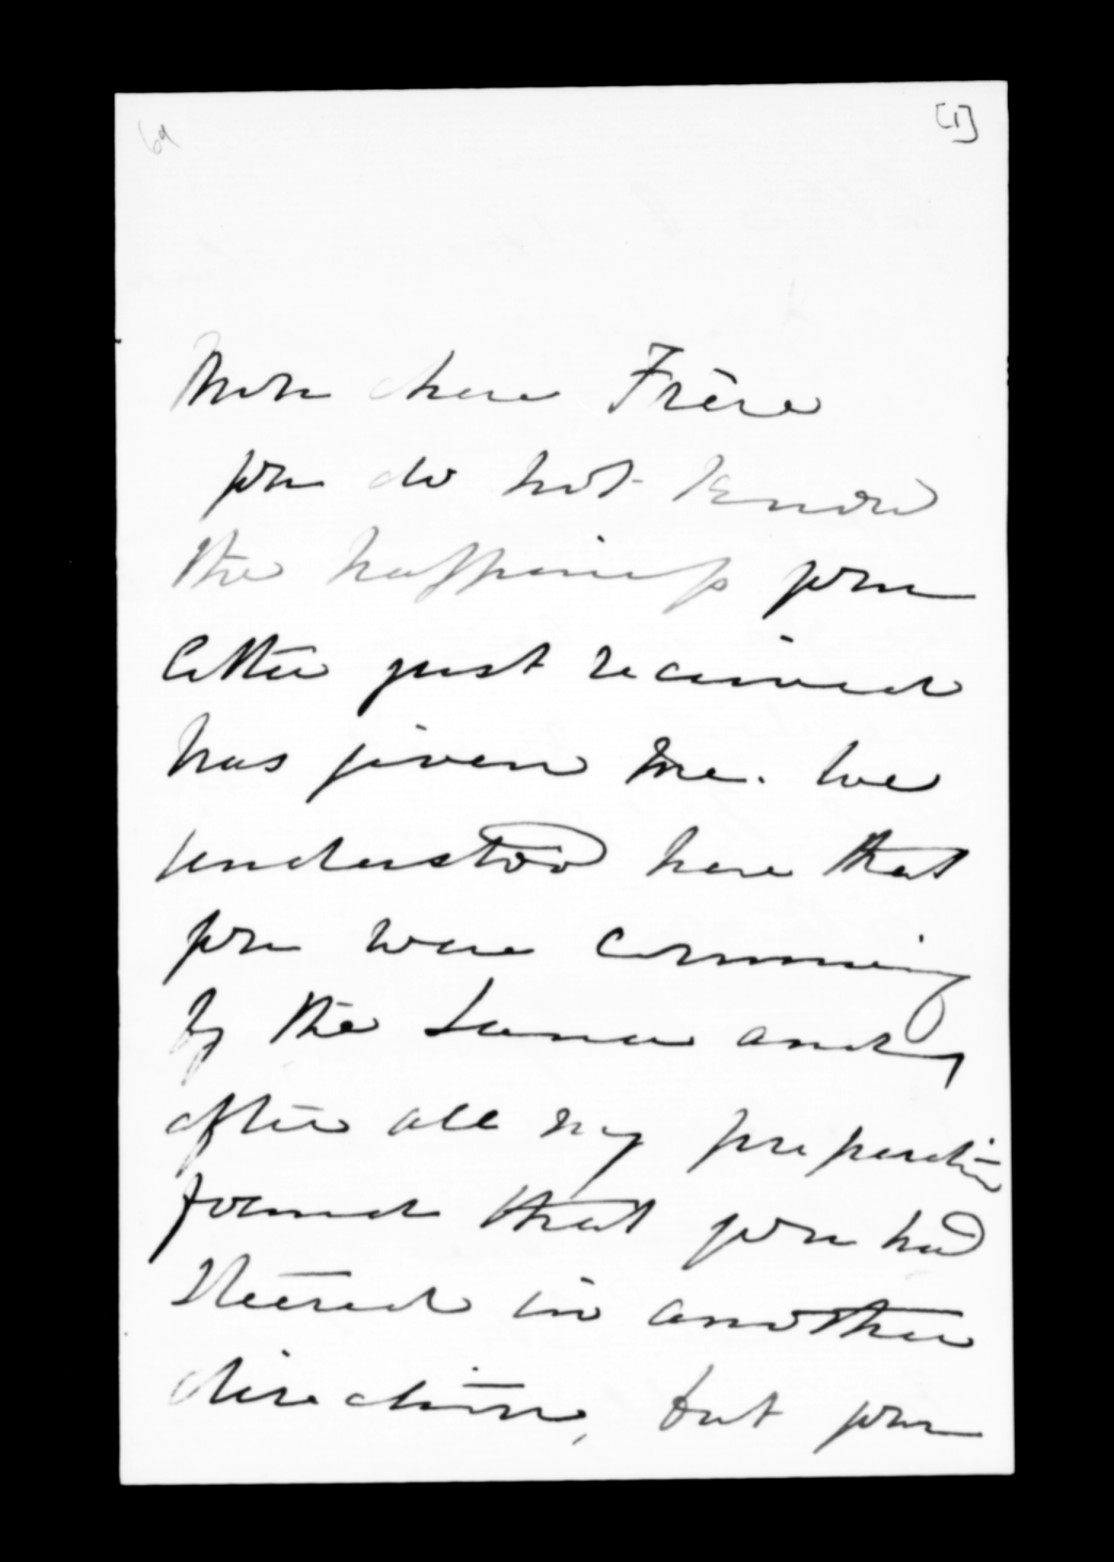 69
[1]
Mon chere Frère
you do not know
the happiness your
letter just received
has given me. We
understood here that
you were comming
by the Luna and
after all my preparation
found that you had
steered in another
direction, but your